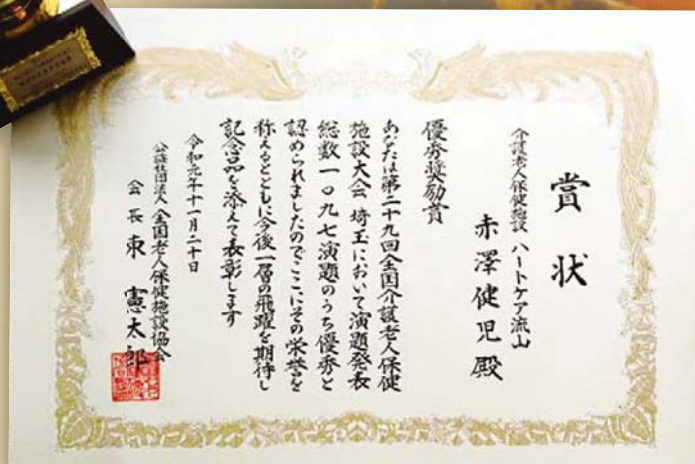 賞状
介護老人保健施設 ハートケア流山
赤澤健児殿
優秀奨励賞
あなたは第二十九回全国介護老人保健
施設大会 埼玉において演題発表
総数一〇九七演題のうち優秀と
認められましたのでここにその栄誉を
称えるとともに今後一層の飛躍を期待し
記念品を添えて表彰します
令和元年十一月二十日
公益社団法人 全国老人保健施設協会
会長 東 憲太郎